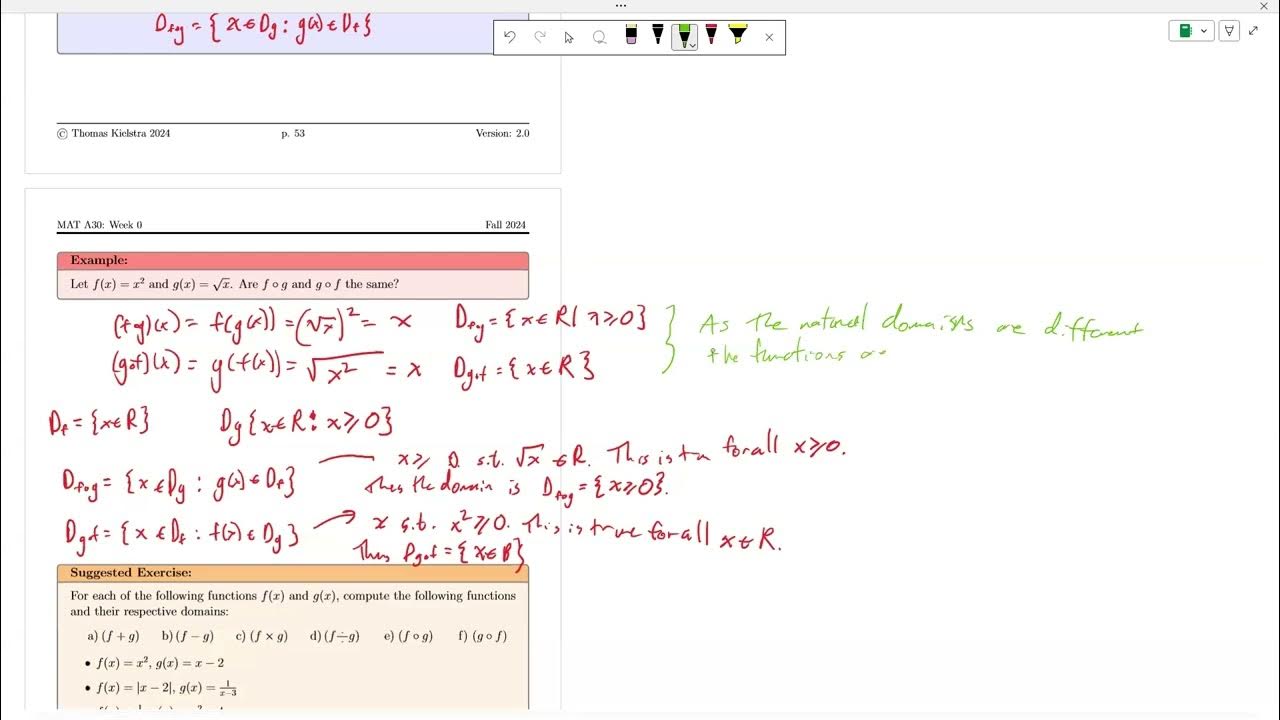 D_{f∘g} = { x ∈ D_g : g(x) ∈ D_f }
© Thomas Kielstra 2024 p. 53 Version: 2.0
MAT A30: Week 0 Fall 2024
Example:
Let f(x) = x² and g(x) = √x. Are f ∘ g and g ∘ f the same?
(f∘g)(x) = f(g(x)) = (√x)² = x D_{f∘g} = {x ∈ R | x ≥ 0} } As the natural domains are different
(g∘f)(x) = g(f(x)) = √x² = x D_{g∘f} = {x ∈ R} the functions
D_f = {x ∈ R} D_g {x ∈ R : x ≥ 0}
D_{f∘g} = {x ∈ D_g : g(x) ∈ D_f} — x ≥ 0 s.t. √x ∈ R. This is true for all x ≥ 0.
Thus the domain is D_{f∘g} = {x ≥ 0}.
D_{g∘f} = {x ∈ D_f : f(x) ∈ D_g} → x s.t. x² ≥ 0. This is true for all x ∈ R.
Thus D_{g∘f} = {x ∈ R}
Suggested Exercise:
For each of the following functions f(x) and g(x), compute the following functions
and their respective domains:
a) (f + g) b) (f − g) c) (f × g) d) (f ÷ g) e) (f ∘ g) f) (g ∘ f)
• f(x) = x², g(x) = x − 2
• f(x) = |x − 2|, g(x) = 1/(x−3)